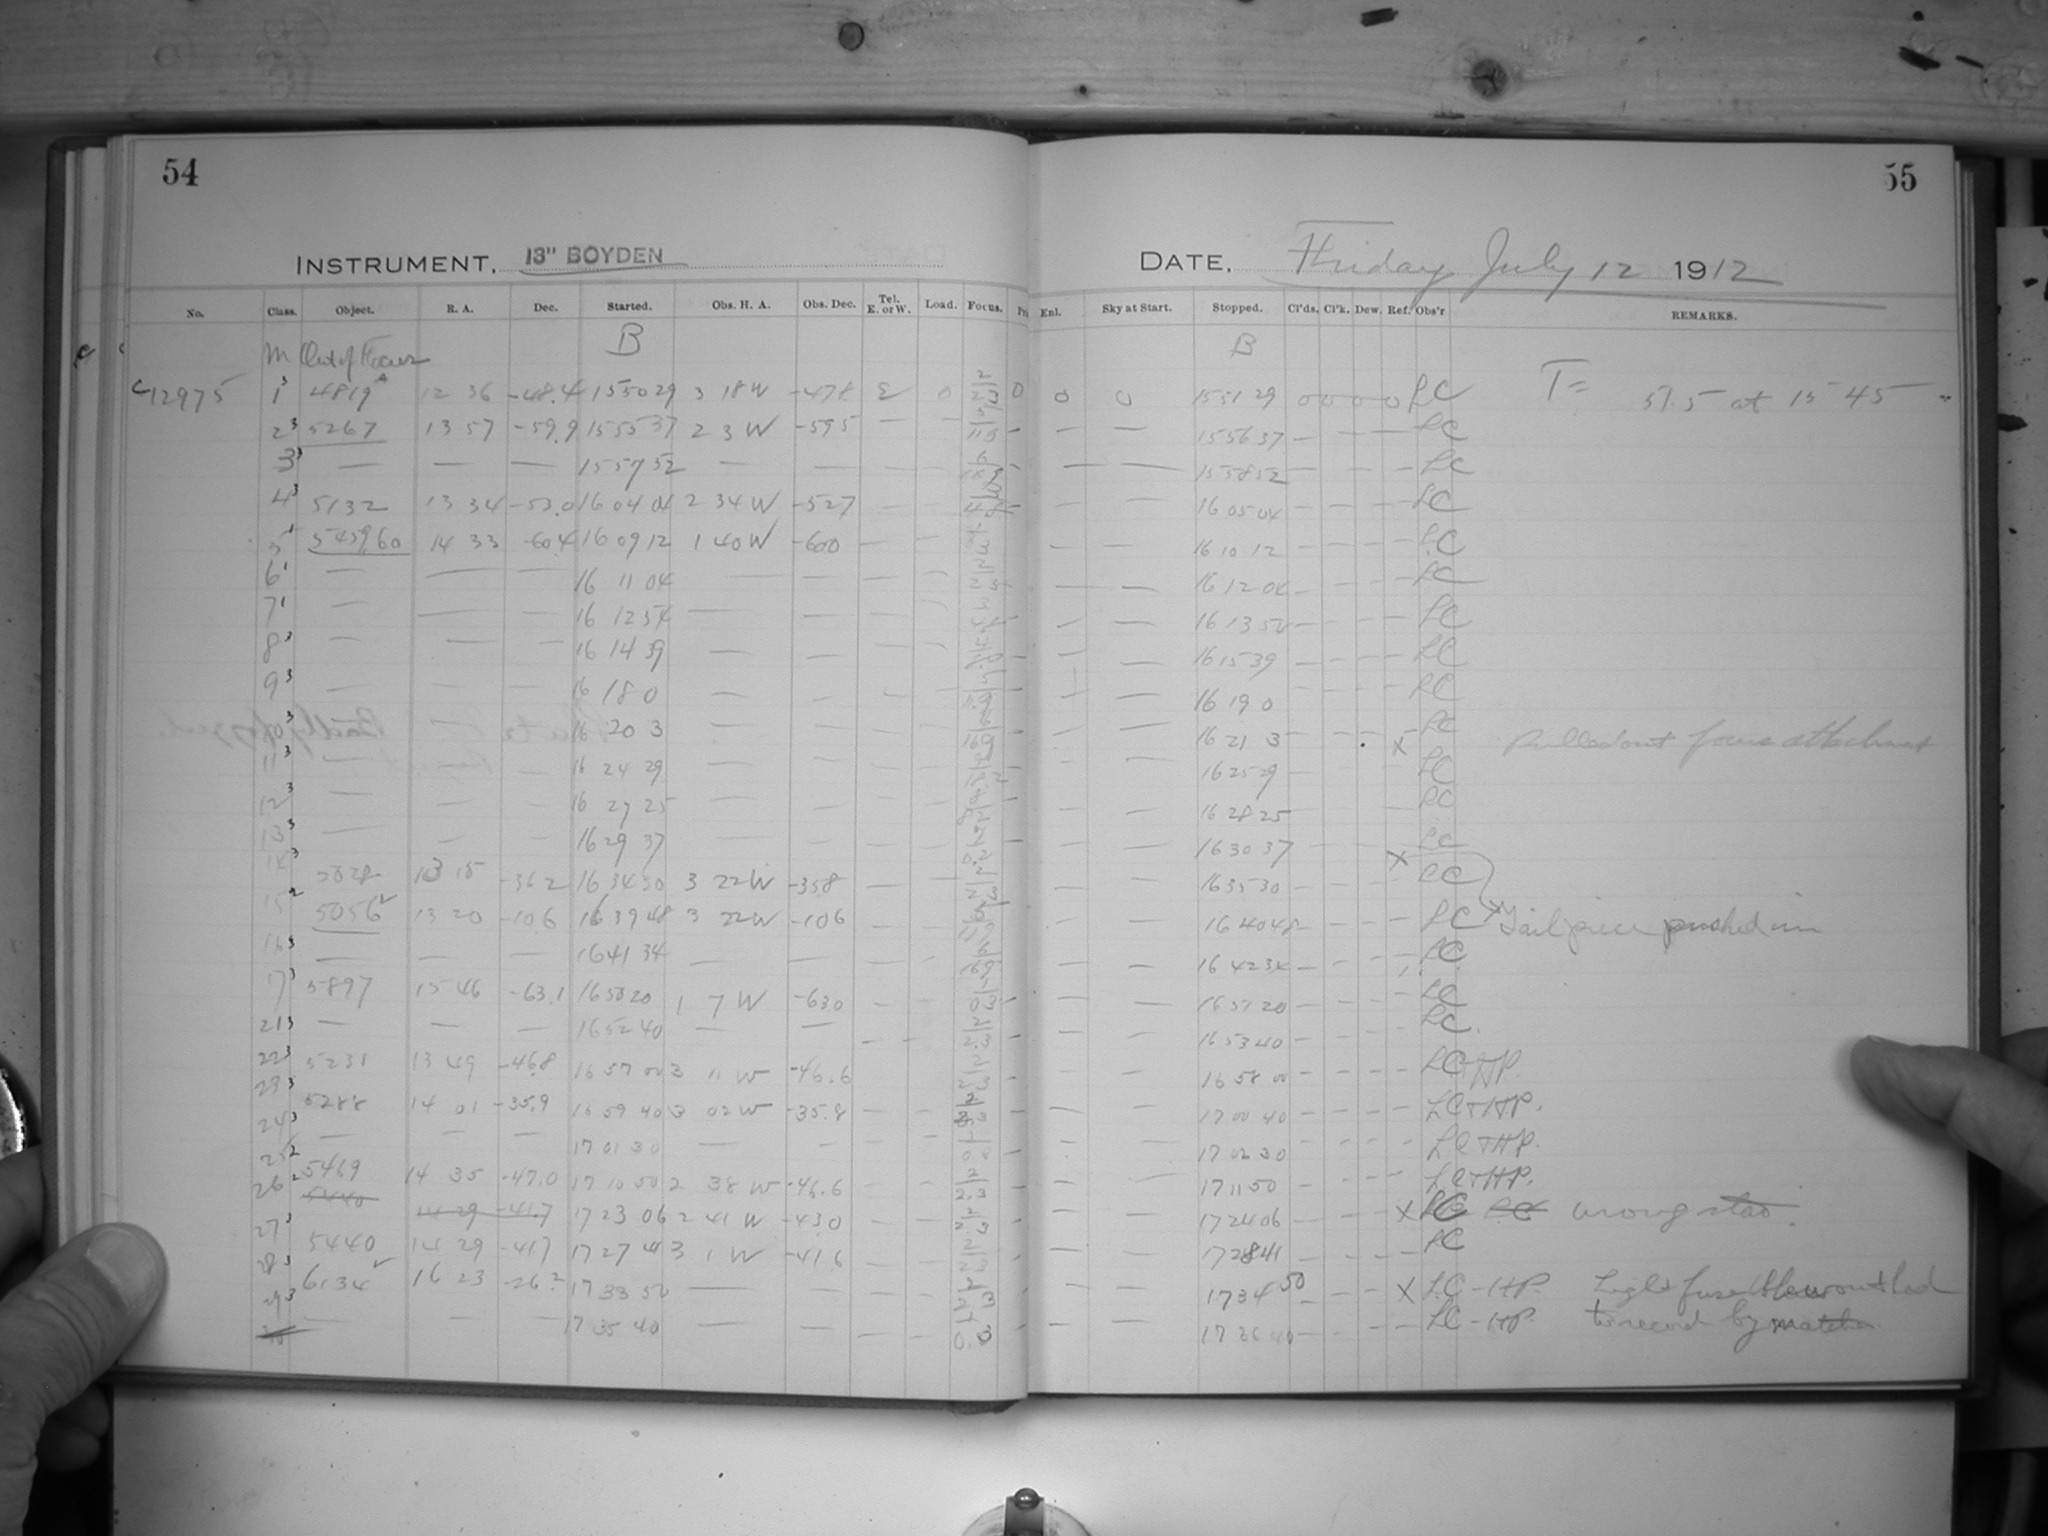 54
INSTRUMENT, 13" BOYDEN
No. Class. Object. R. A. Dec. Started. Obs. H. A. Obs. Dec. Tel. E. or W. Load. Focus.
M Out of Focus B
C12975 1³ 4819 12 36 -48.4 15 50 29 3 18 W -47.8 E 0
2³ 5267 13 57 -59.9 15 55 37 2 3 W -59.5 —
3³ — — — 15 57 52 — —
4³ 5132 13 34 -53.0 16 04 04 2 34 W -52.7
5¹ 5459,60 14 33 -60.4 16 09 12 1 40 W -60.0 —
6¹ — — — 16 11 04 — — —
7¹ — — — 16 12 54 — — —
8³ — — — 16 14 39 — — —
9³ — — — 16 18 0 — — —
10³ — — 16 20 3 — —
11³ — — — 16 24 29 — — —
12³ — — — 16 27 25 — — —
13³ — — — 16 29 37 — — —
14³ 5028 13 15 -36.2 16 34 30 3 22 W -35.8 —
15² 5056² 13 20 -10.6 16 39 48 3 22 W -10.6 —
16³ — — — 16 41 34 — — —
17³ 5897 15 46 -63.1 16 50 20 1 7 W -63.0 —
21³ — — — 16 52 40 — — —
22³ 5231 13 49 -46.8 16 57 00 3 11 W -46.6
23³ 5288 14 01 -35.9 16 59 40 3 02 W -35.8 —
24³ — — — 17 01 30 — — —
25² 5469 14 35 -47.0 17 10 50 2 38 W -46.6 —
26² 5440 14 29 -41.7 17 23 06 2 41 W -43.0 —
27³ 5440 14 29 -41.7 17 27 41 3 1 W -41.6 —
28³ 6134² 16 23 -26.2 17 33 50 — — —
29³ — — — 17 35 40 — — —
55
DATE, Friday July 12 1912
Enl. Sky at Start. Stopped. Cl'ds. Cl'k. Dew. Ref. Obs'r REMARKS.
B
0 0 15 51 29 0 0 0 0 LC T= 51.5 at 15 45
— — 15 56 37 — — — — LC
— — 15 58 52 — — — — LC
— — 16 05 04 — — — — LC
— — 16 10 12 — — — — LC
— — 16 12 04 — — — — LC
— — 16 13 54 — — — — LC
— — 16 15 39 — — — — LC
— — 16 19 0 — — — — LC
— — 16 21 3 — — X LC Pulled out focus attachment
— — 16 25 29 — — — LC
— — 16 28 25 — — — LC
— — 16 30 37 — — — LC
— — 16 35 30 — — X LC
— — 16 40 48 — — — — LC Tailpiece pushed in
— — 16 42 34 — — — LC
— — 16 51 20 — — — — LC
— — 16 53 40 — — — LC.
— — 16 58 00 — — — LC+HP.
— — 17 00 40 — — — — LC+HP.
— — 17 02 30 — — — — LC+HP.
— — 17 11 50 — — — — LC+HP.
— — 17 24 06 — — — X LC LC wrong star.
— — 17 28 41 — — — LC
— — 17 34 50 — — — X LC-HP. Light fuse blew out had
— — 17 36 40 — — — LC-HP. to record by matches